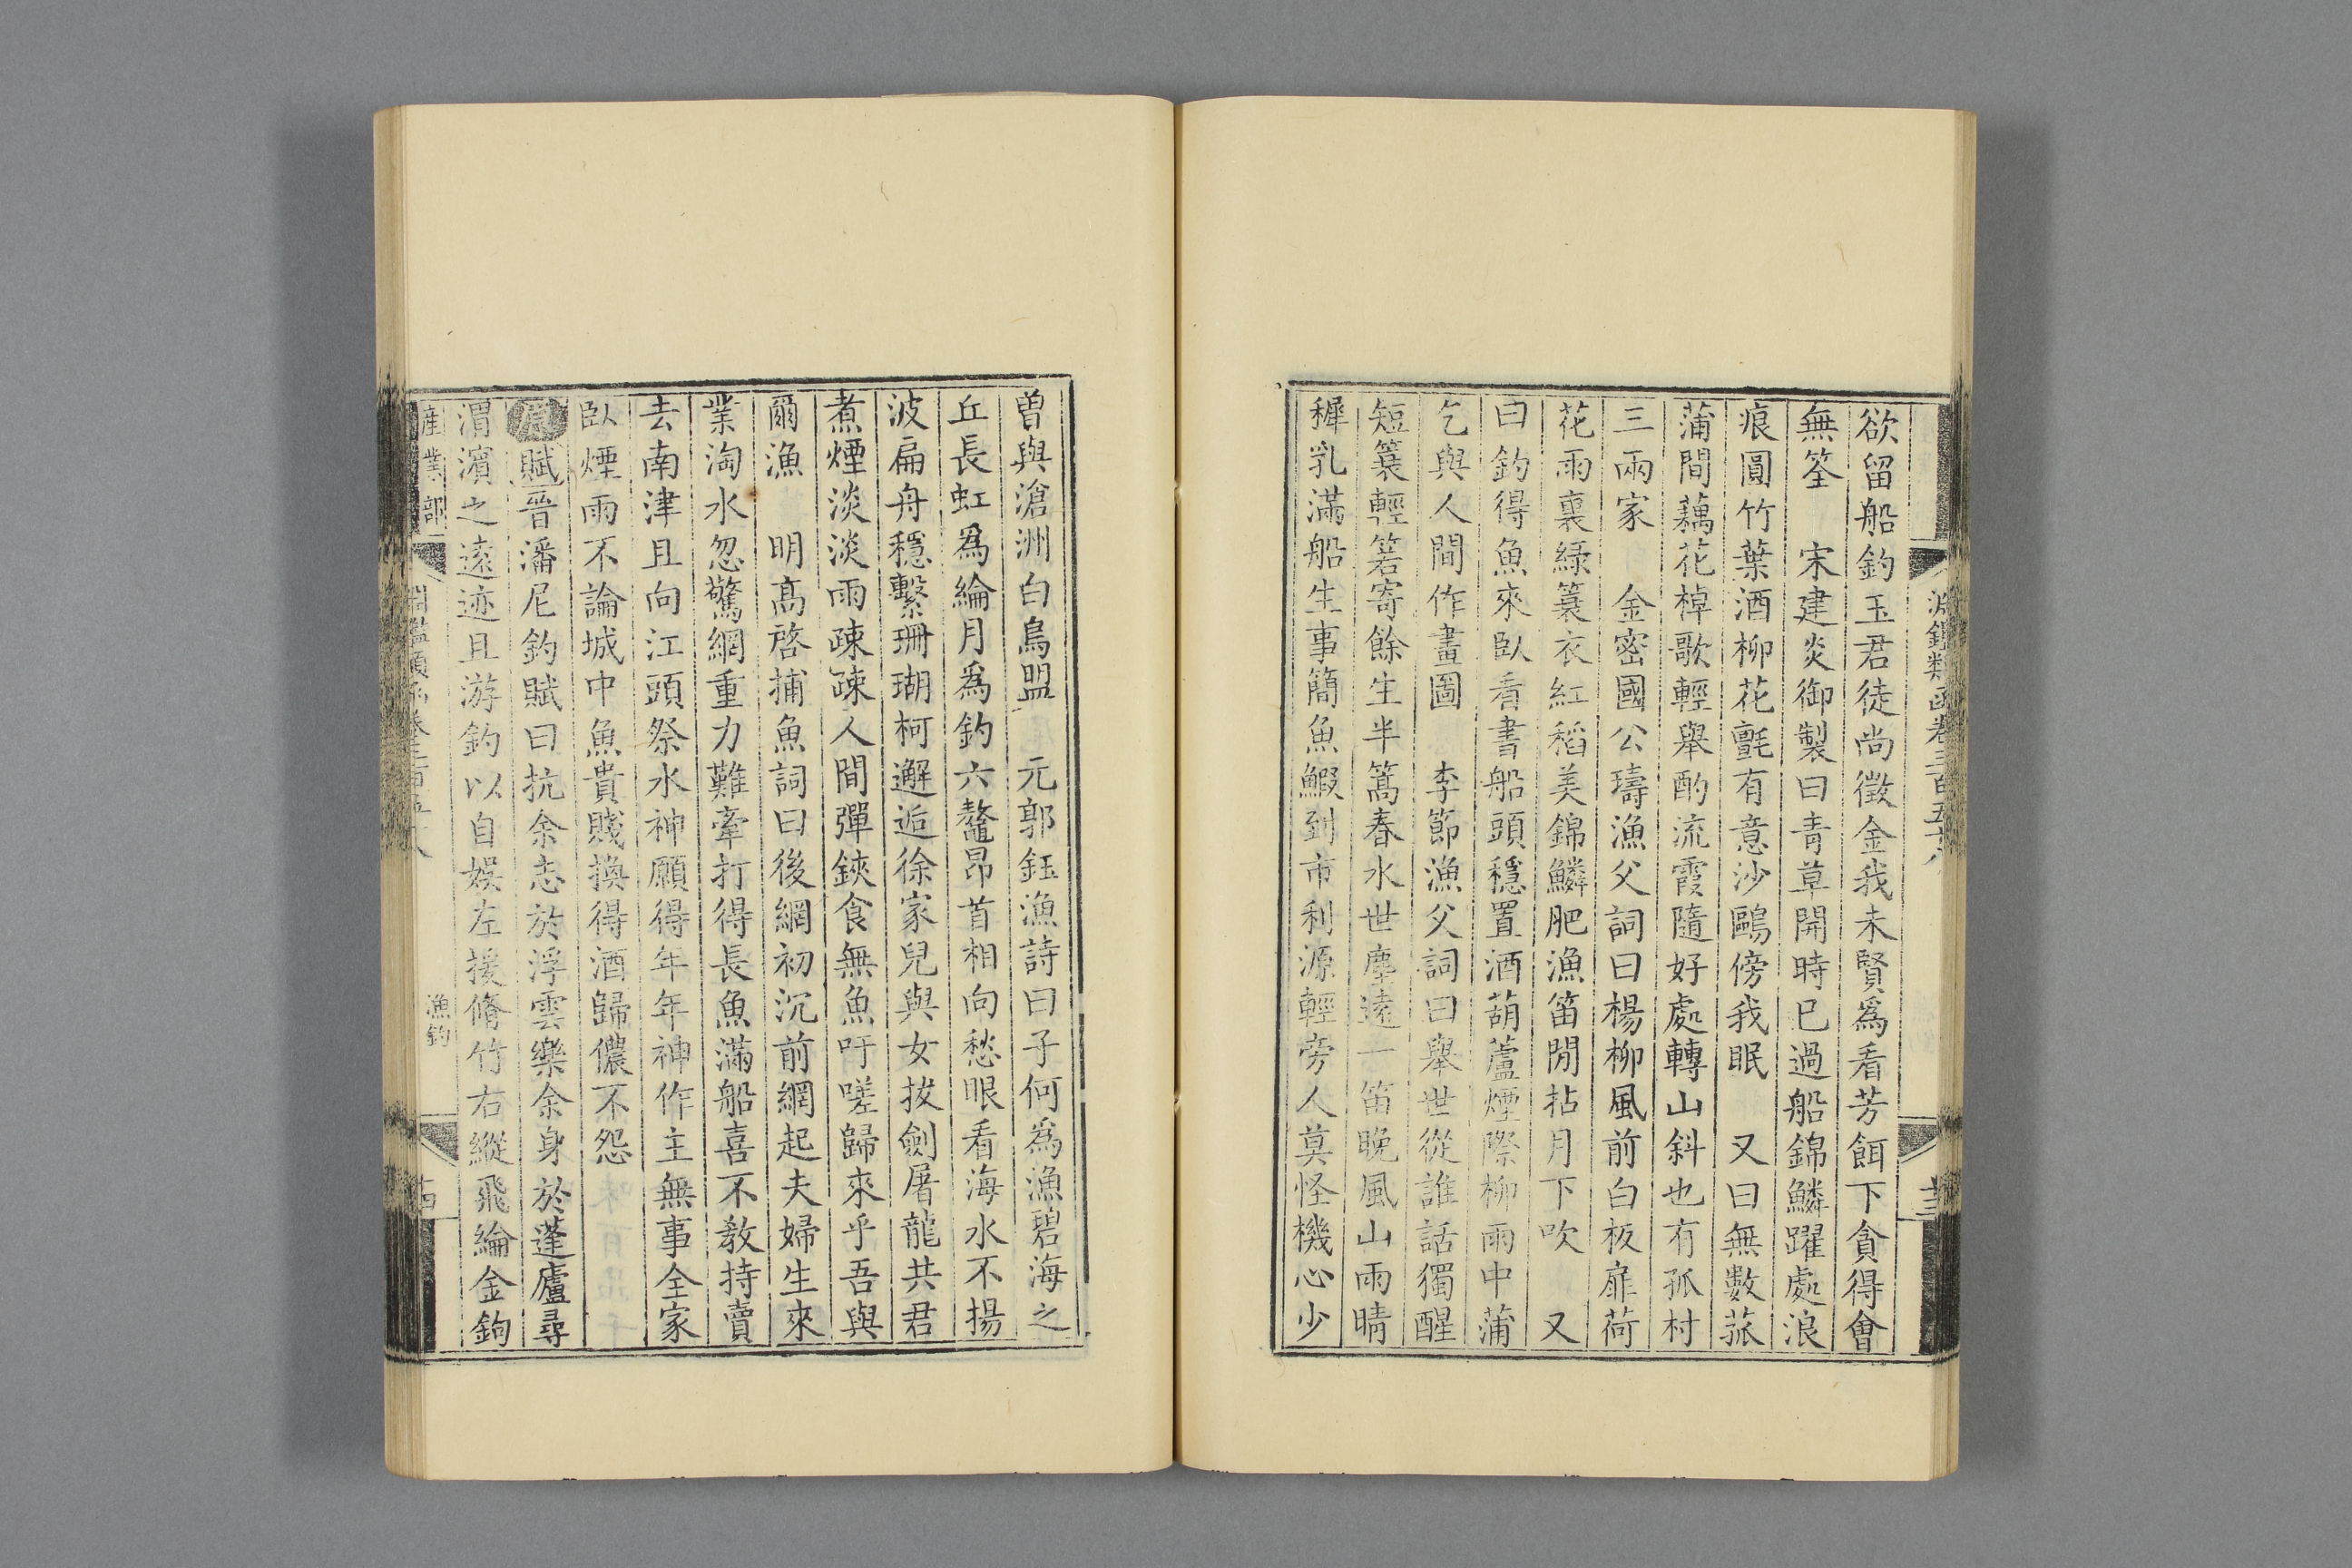 淵鑑類函卷三百五十八
欲留船釣玉君徒尚徵金我未賢爲看芳餌下貪得會
無筌　宋建炎御製曰青草開時已過船錦鱗躍處浪
痕圓竹葉酒柳花氈有意沙鷗傍我眠　又曰無數菰
蒲間藕花棹歌輕舉酌流霞隨好處轉山斜也有孤村
三兩家　金密國公璹漁父詞曰楊柳風前白板扉荷
花雨裏綠蓑衣紅稻美錦鱗肥漁笛閒拈月下吹　又
曰釣得魚來臥看書船頭穩置酒葫蘆煙際柳雨中蒲
乞與人間作畫圖　李節漁父詞曰舉世從誰話獨醒
短蓑輕箬寄餘生半篙春水世塵遠一笛晚風山雨晴
穉乳滿船生事簡魚鰕到市利源輕旁人莫怪機心少
曾與滄洲白鳥盟　元郭鈺漁詩曰子何爲漁碧海之
丘長虹爲綸月爲釣六鼇昂首相向愁眼看海水不揚
波扁舟穩繫珊瑚柯邂逅徐家兒與女拔劍屠龍共君
煮煙淡淡雨疎疎人間彈鋏食無魚吁嗟歸來乎吾與
爾漁　明高啓捕魚詞曰後網初沉前網起夫婦生來
業淘水忽驚網重力難牽打得長魚滿船喜不敎持賣
去南津且向江頭祭水神願得年年神作主無事全家
臥煙雨不論城中魚貴賤換得酒歸儂不怨
賦晉潘尼釣賦曰抗余志於浮雲樂余身於蓬廬尋
渭濱之遠迹且游釣以自娛左援脩竹右縱飛綸金鉤
產業部
漁釣